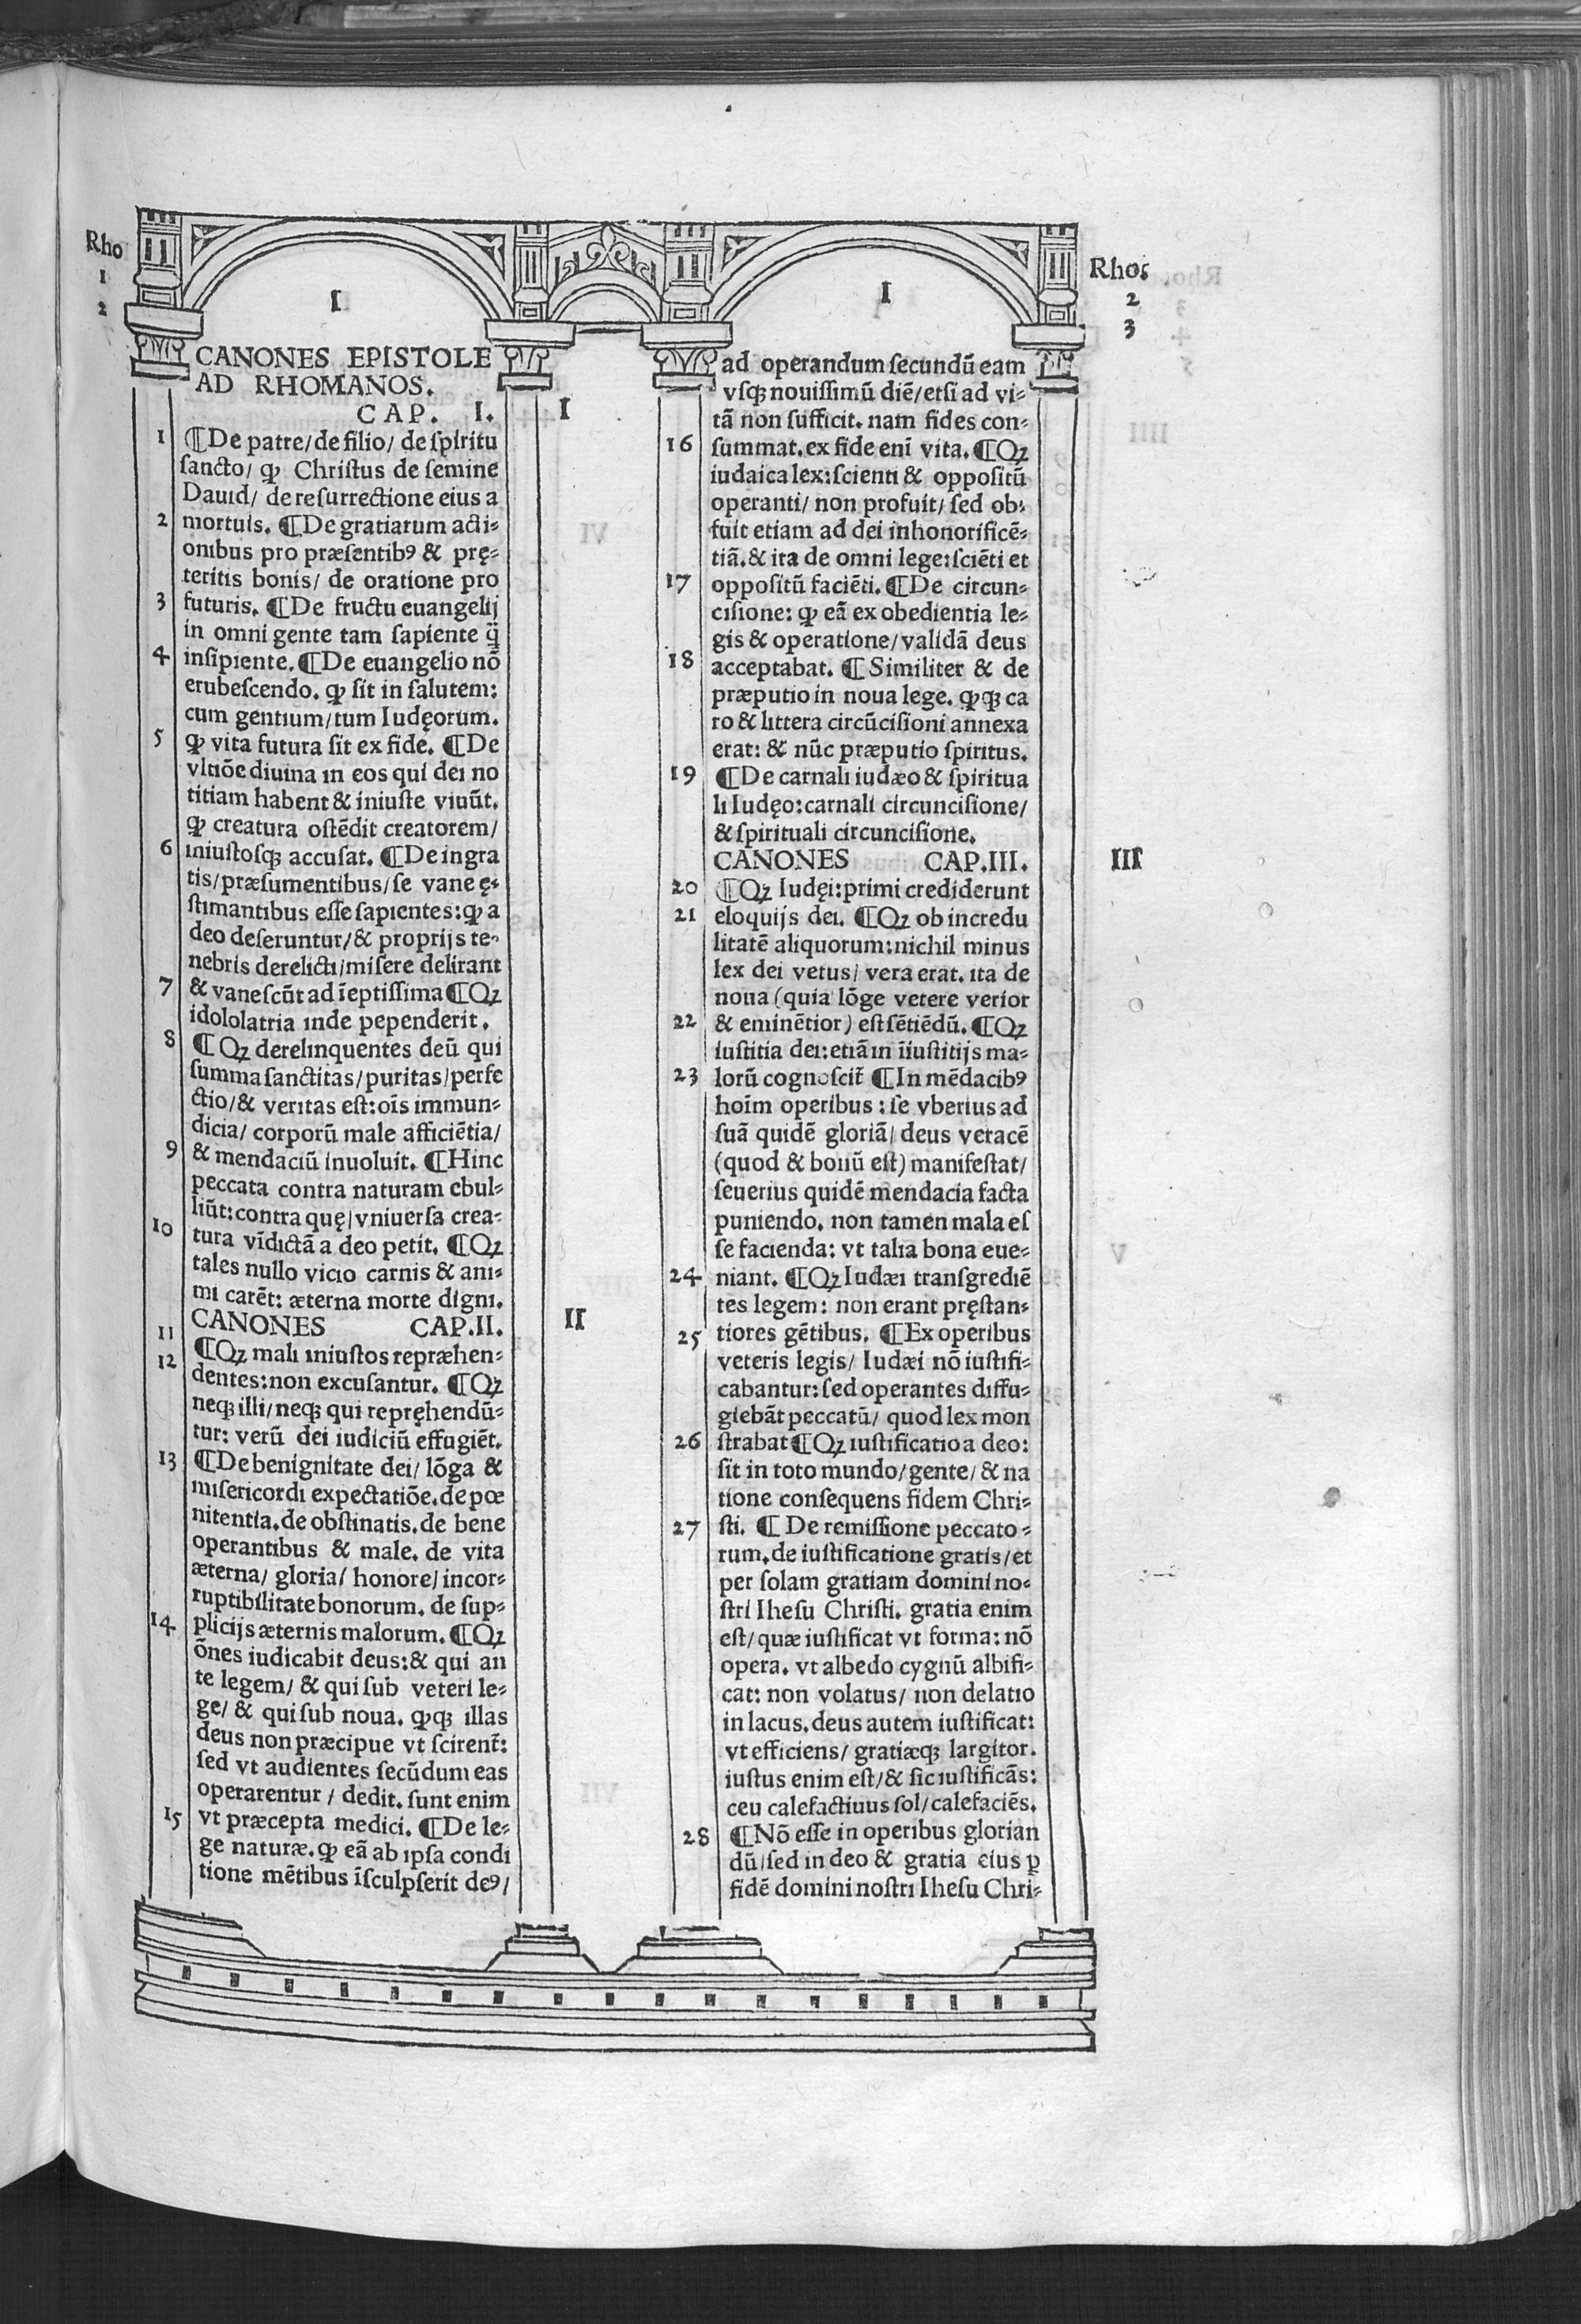 Rho
1
2
I
CANONES EPISTOLE
AD RHOMANOS.
CAP. I.
I
1 ¶De patre/de filio/ de spiritu
sancto/ ꝙ Christus de semine
Dauid/ de resurrectione eius a
2 mortuis. ¶De gratiarum acti⸗
onibus pro præsentibꝰ & prę⸗
teritis bonis/ de oratione pro
3 futuris. ¶De fructu euangelij
in omni gente tam sapiente q̃̃
4 insipiente. ¶De euangelio nõ
erubescendo. ꝙ sit in salutem:
cum gentium/tum Iudęorum.
5 ꝙ vita futura sit ex fide. ¶De
vltiõe diuina in eos qui dei no
titiam habent & iniuste viuũt.
ꝙ creatura ostẽdit creatorem/
6 iniustosqꝫ accusat. ¶De ingra
tis/præsumentibus/se vane ę⸗
stimantibus esse sapientes:ꝙ a
deo deseruntur/& proprijs te⸗
nebris derelicti/misere delirant
7 & vanescũt ad ĩeptissima ¶Qꝫ
idololatria inde pependerit.
8 ¶Qꝫ derelinquentes deũ qui
summa sanctitas/puritas/perfe
ctio/& veritas est:oĩs immun⸗
dicia/ corporũ male afficiẽtia/
9 & mendaciũ inuoluit. ¶Hinc
peccata contra naturam ebul⸗
liũt:contra quę/vniuersa crea⸗
10 tura vĩdictã a deo petit. ¶Qꝫ
tales nullo vicio carnis & ani⸗
mi carẽt: æterna morte digni.
CANONES CAP.II.
II
11 ¶Qꝫ mali iniustos repræhen⸗
12 dentes:non excusantur. ¶Qꝫ
neqꝫ illi/neqꝫ qui repręhendũ⸗
tur: verũ dei iudiciũ effugiẽt.
13 ¶De benignitate dei/ lõga &
misericordi expectatiõe.de pœ
nitentia.de obstinatis.de bene
operantibus & male. de vita
æterna/ gloria/ honore/ incor⸗
ruptibilitate bonorum. de sup⸗
14 plicijs æternis malorum. ¶Qꝫ
õnes iudicabit deus:& qui an
te legem/ & qui sub veteri le⸗
ge/ & qui sub noua. ꝙqꝫ illas
deus non præcipue vt scirent̃:
sed vt audientes secũdum eas
operarentur / dedit. sunt enim
15 vt præcepta medici. ¶De le⸗
ge naturæ.ꝙ eã ab ipsa condi
tione mẽtibus ĩsculpserit deꝰ/
Rhoꝫ
2
3
I
ad operandum secundũ eam
vsqꝫ nouissimũ diẽ/etsi ad vi⸗
tã non sufficit. nam fides con⸗
16 summat.ex fide enĩ vita. ¶Qꝫ
iudaica lex:scienti & oppositũ
operanti/ non profuit/ sed ob⸗
fuit etiam ad dei inhonorificẽ⸗
tiã.& ita de omni lege:sciẽti et
17 oppositũ faciẽti. ¶De circun⸗
cisione: ꝙ eã ex obedientia le⸗
gis & operatione/validã deus
18 acceptabat. ¶Similiter & de
præputio in noua lege. ꝙqꝫ ca
ro & littera circũcisioni annexa
erat: & nũc præputio spiritus.
19 ¶De carnali iudæo & spiritua
li Iudęo:carnali circuncisione/
& spirituali circuncisione.
CANONES CAP.III.
III
20 ¶Qꝫ Iudęi:primi crediderunt
21 eloquijs dei. ¶Qꝫ ob incredu
litatẽ aliquorum:nichil minus
lex dei vetus/ vera erat. ita de
noua (quia lõge vetere verior
22 & eminẽtior) est sẽtiẽdũ. ¶Qꝫ
iustitia dei:etiã in ĩiustitijs ma⸗
23 lorũ cognoscit̃ ¶In mẽdacibꝰ
hoĩm operibus : se vberius ad
suã quidẽ gloriã/ deus veracẽ
(quod & bonũ est) manifestat/
seuerius quidẽ mendacia facta
puniendo. non tamen mala es
se facienda: vt talia bona eue⸗
24 niant. ¶Qꝫ Iudæi transgrediẽ
tes legem: non erant pręstan⸗
25 tiores gẽtibus. ¶Ex operibus
veteris legis/ Iudæi nõ iustifi⸗
cabantur:sed operantes diffu⸗
giebãt peccatũ/ quod lex mon
26 strabat ¶Qꝫ iustificatio a deo:
sit in toto mundo/gente/ & na
tione consequens fidem Chri⸗
27 sti. ¶ De remissione peccato⸗
rum.de iustificatione gratis/et
per solam gratiam domini no⸗
stri Ihesu Christi. gratia enim
est/ quæ iustificat vt forma: nõ
opera. vt albedo cygnũ albifi⸗
cat: non volatus/ non delatio
in lacus.deus autem iustificat:
vt efficiens/ gratiæqꝫ largitor.
iustus enim est/& sic iustificãs:
ceu calefactiuus sol/ calefaciẽs.
28 ¶Nõ esse in operibus glorian
dũ/sed in deo & gratia eius ꝑ
fidẽ domini nostri Ihesu Chri⸗